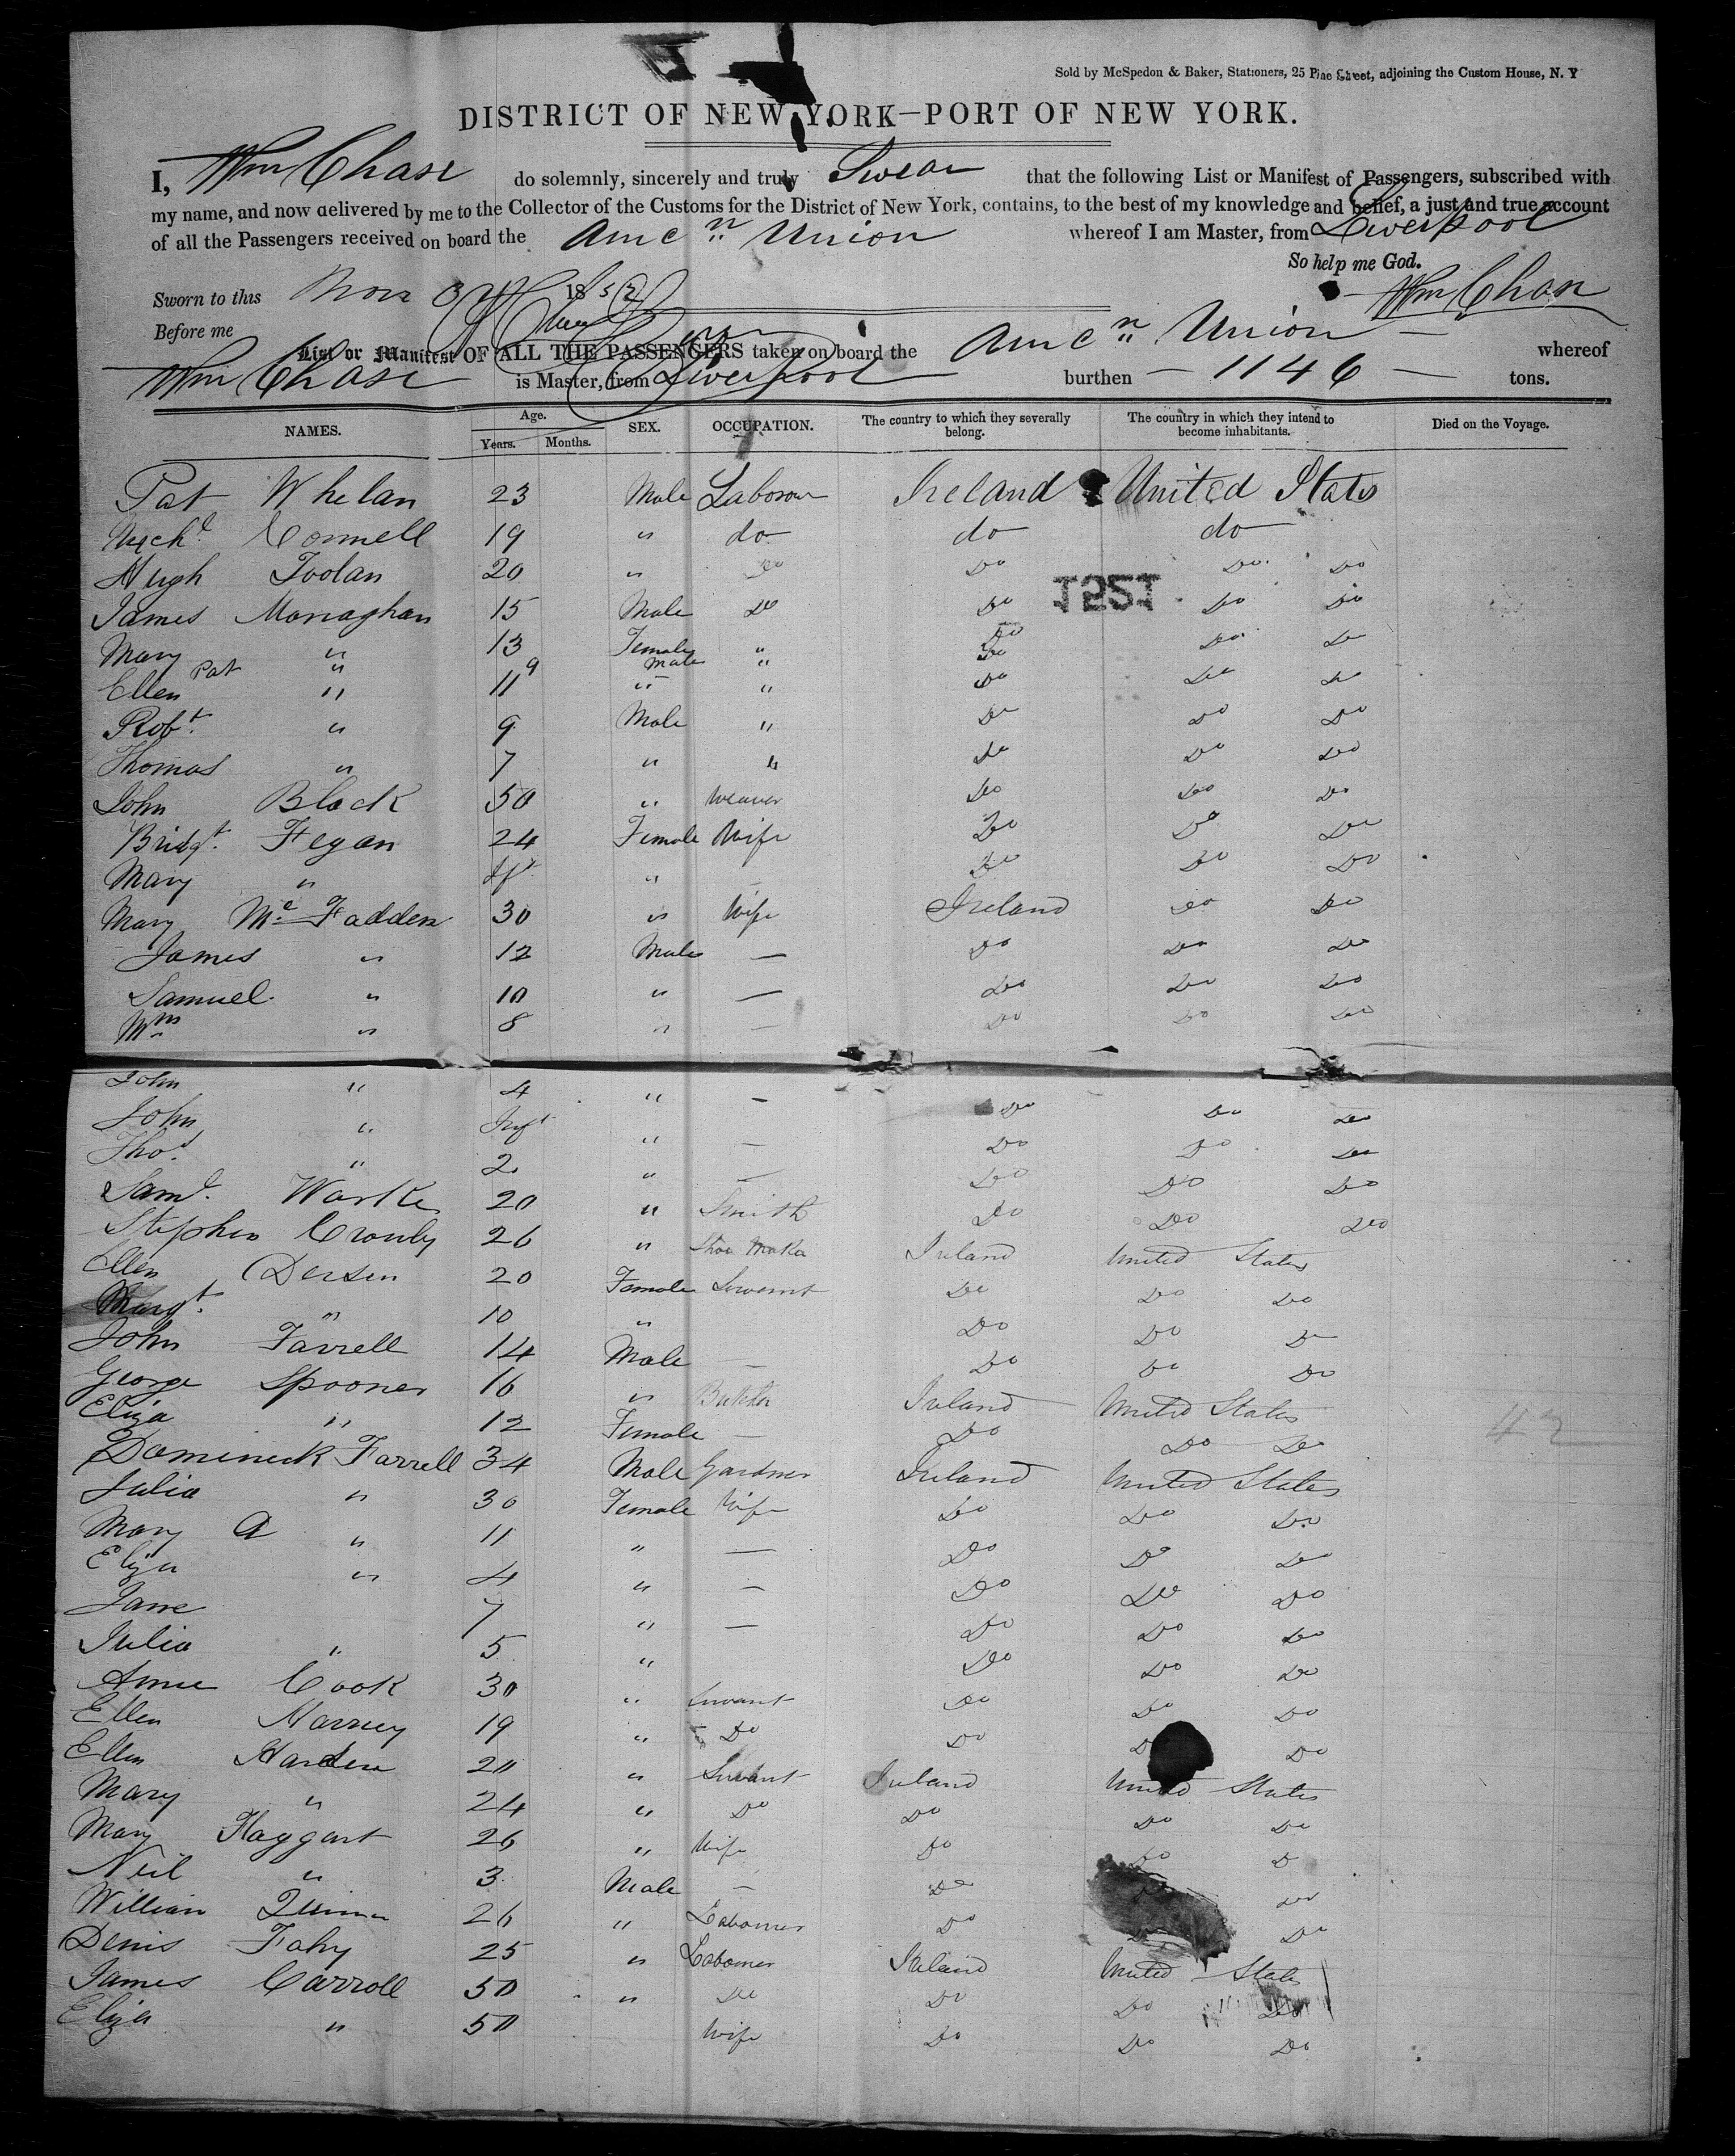 Sold by McSpedon & Baker, Stationers, 25 Pine Street, adjoining the Custom House, N. Y
DISTRICT OF NEW YORK—PORT OF NEW YORK.
I, Wm Chase do solemnly, sincerely and truly Swear that the following List or Manifest of Passengers, subscribed with
my name, and now delivered by me to the Collector of the Customs for the District of New York, contains, to the best of my knowledge and belief, a just and true account
of all the Passengers received on board the Amcn Union whereof I am Master, from Liverpool
So help me God.
Sworn to this 1852 Wm Chase
Before me
List or Manifest OF ALL THE PASSENGERS taken on board the Amcn Union whereof
Wm Chase is Master, from Liverpool burthen — 1146 — tons.
NAMES. Age. Years. Months. SEX. OCCUPATION. The country to which they severally belong. The country in which they intend to become inhabitants. Died on the Voyage.
Pat Whelan 23 Male Labourer Ireland United States
Michl Connell 19 " do do do
Hugh Toolan 20 " Do Do Do Do
1521
James Monaghan 15 Male Do Do Do Do
Mary " 13 Female " Do Do Do
Pat " 9 Male " Do
Ellen " 11 " " Do Do Do
Robt " 9 Male " Do Do Do
Thomas " 7 " " Do Do Do
John Black 50 " Weaver Do Do Do
Bridgt Fegan 24 Female Wife Do Do Do
Mary " Inft " Do Do Do
Mary Mc Fadden 30 " Wife Ireland Do Do
James " 12 Male — Do Do Do
Samuel " 10 " — Do Do Do
Wm " 8 " — Do Do Do
John " 4 " — Do Do Do
John " Inft " — Do Do Do
Thos " 2 " — Do Do Do
Saml Warke 20 " Smith Do Do Do
Stephen Crouly 26 " Shoe Maker Ireland United States
Ellen 20 Female Servant Do Do Do
Margt " 10 " Do Do Do
John Farrell 14 Male — Do Do Do
George Spooner 16 " Butcher Ireland United States
Eliza " 12 Female — Do Do Do
42
Domineck Farrell 34 Male Gardner Ireland United States
Julia " 30 Female Wife Do Do Do
Mary A " 11 " — Do Do Do
Eliza " 4 " — Do Do Do
Jane 7 " — Do Do Do
Julia " 5 " Do Do Do
Anne Cook 30 " Servant Do Do Do
Ellen Marney 19 " Do Do Do Do
Ellen Harden 20 " Servant Ireland United States
Mary " 24 " Do Do Do Do
Mary Haggart 26 " Wife Do Do Do
Neil " 3 Male — Do Do Do
William Quinn 26 " Labourer Do Do Do
Denis Fahy 25 " Labourer Ireland United States
James Carroll 50 " Do Do Do Do
Eliza " 50 Wife Do Do Do